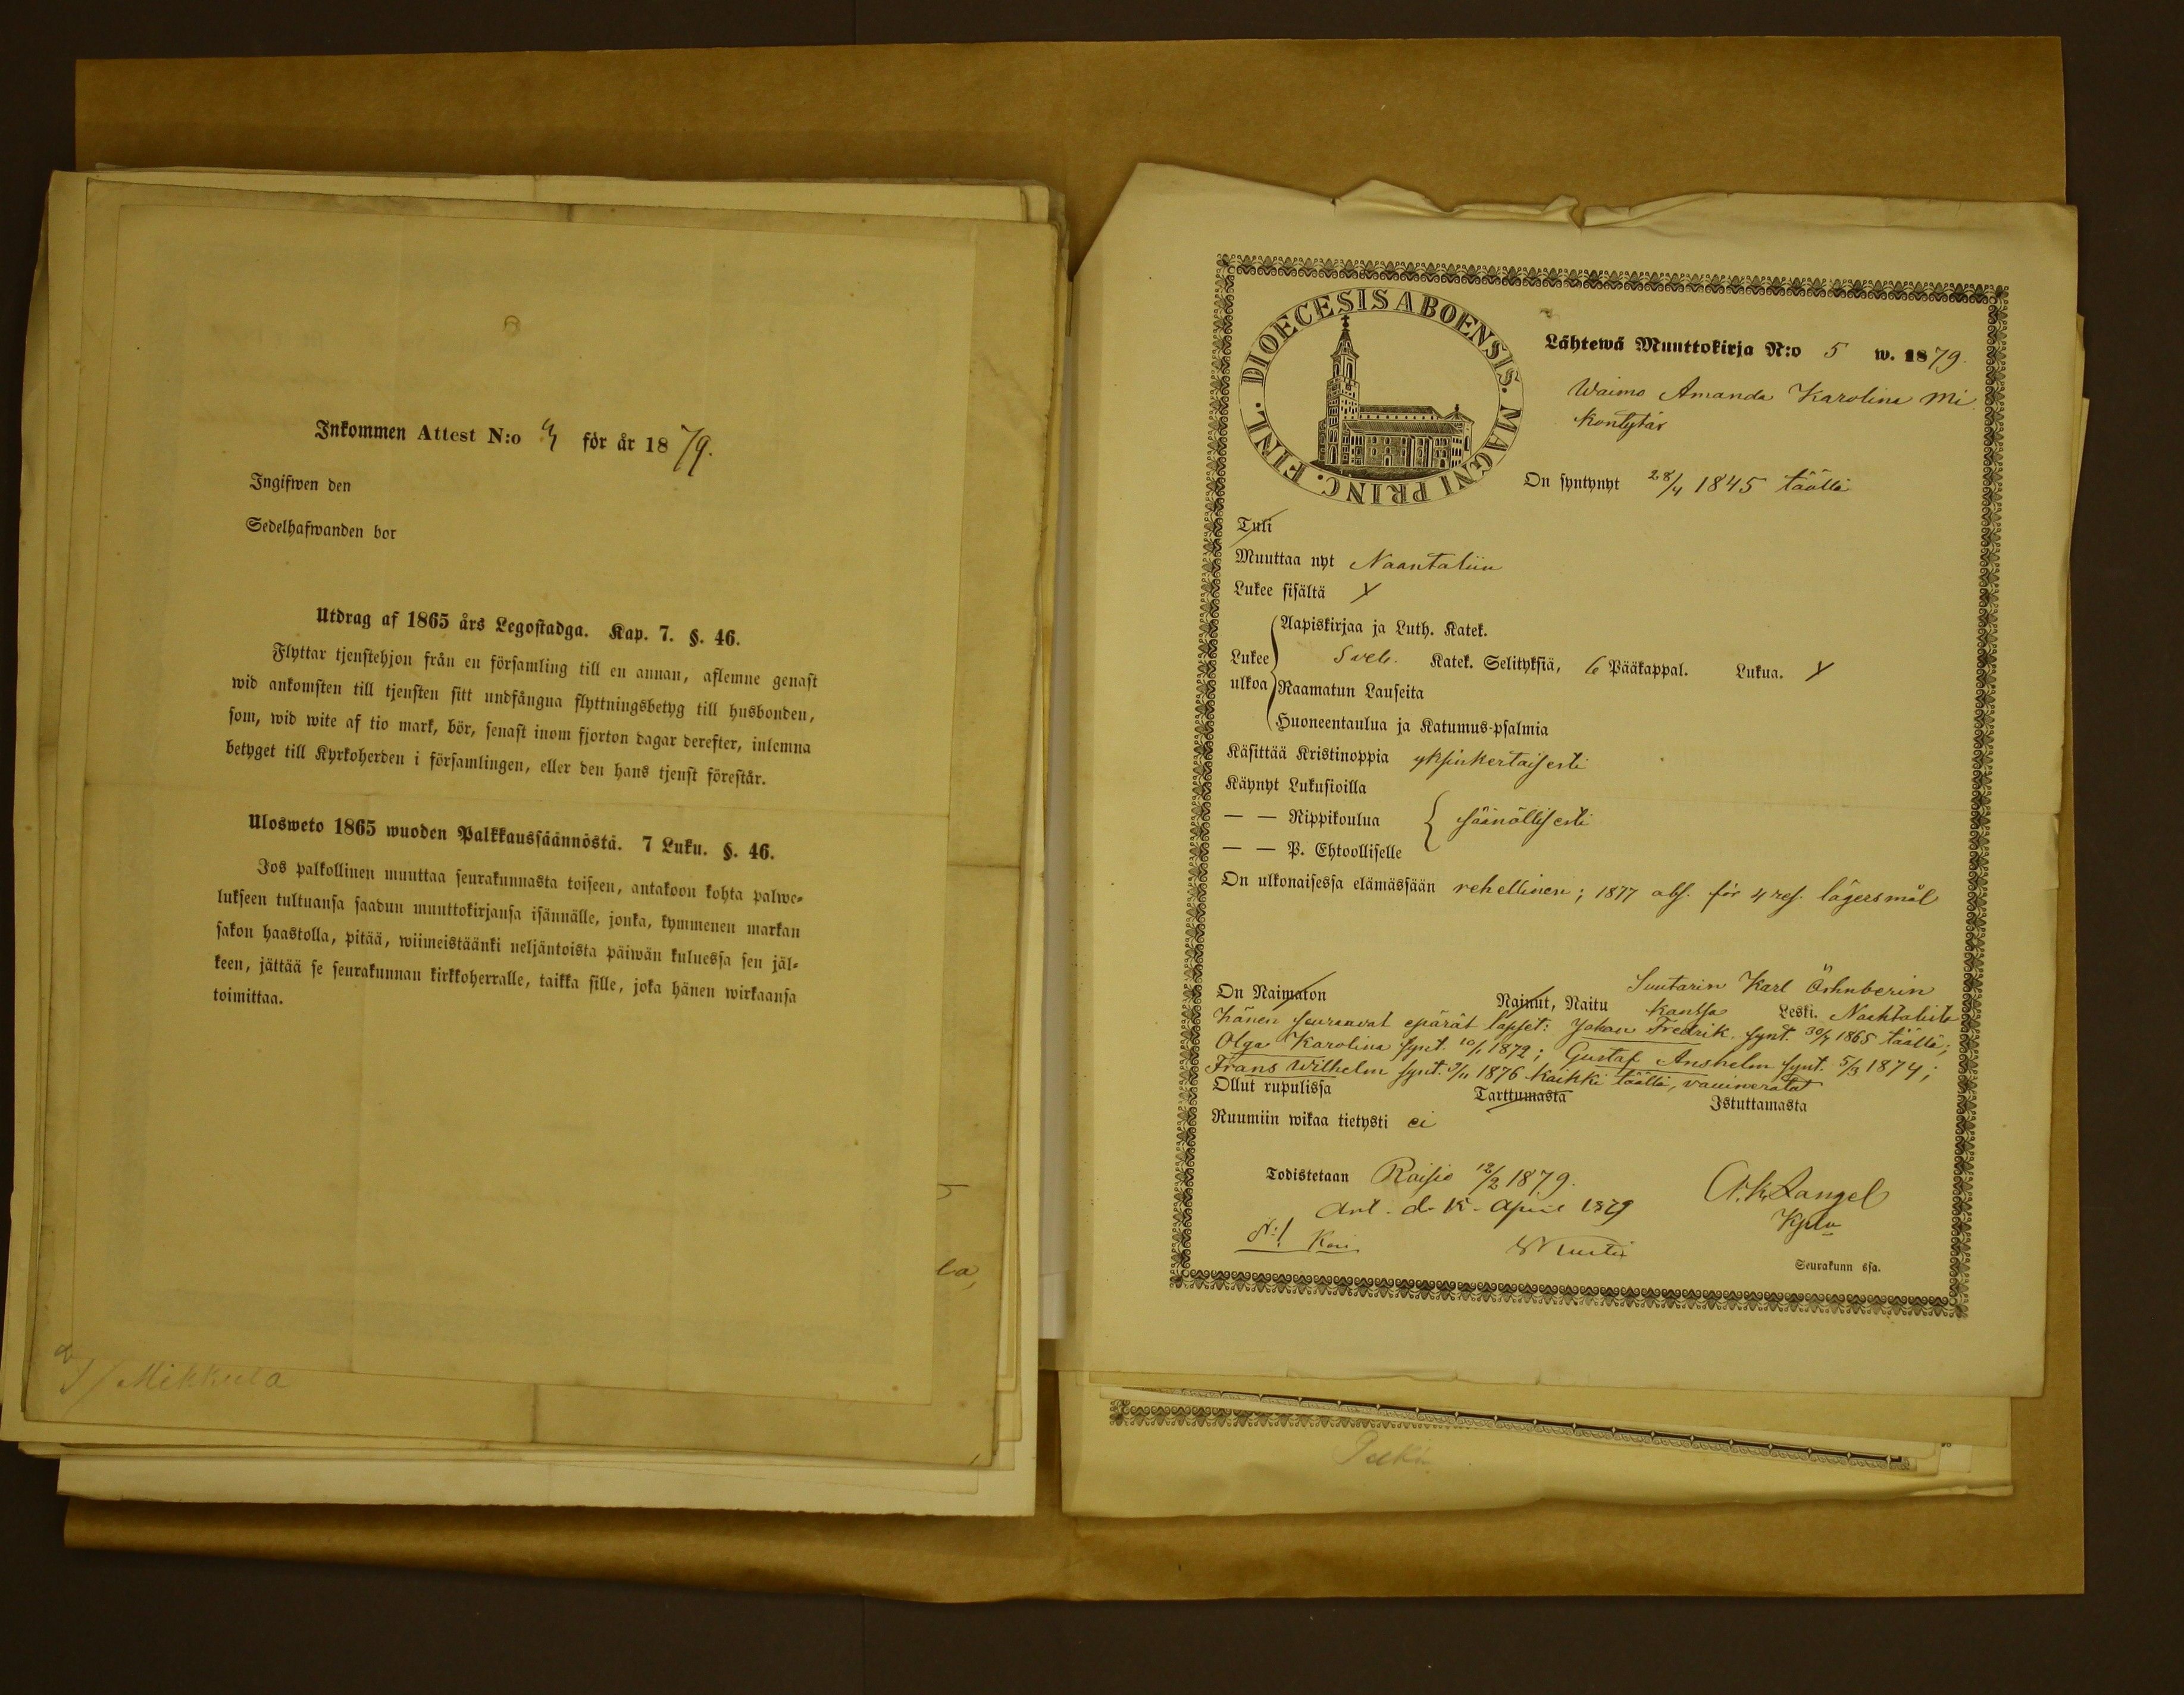 Inkommen Attest N:o 9 för år 1879.
Ingifwen den
Sedelhafwanden bor
Utdrag af 1865 års Legostadga. Kap. 7. §. 46.
Flyttar tjenstehjon från en församling till en annan, aflemne genast
wid ankomsten till tjensten sitt undfångna flyttningsbetyg till husbonden,
som, wid wite af tio mark, bör, senast inom fjorton dagar derefter, inlemna
betyget till Kyrkoherden i församlingen, eller den hans tjenst förestår.
Ulosweto 1865 wuoden Palkkaussäännöstä. 7 Luku. §. 46.
Jos palkollinen muuttaa seurakunnasta toiseen, antakoon kohta palwe-
lukseen tultuansa saadun muuttokirjansa isännälle, jonka, kymmenen markan
sakon haastolla, pitää, wiimeistäänki neljäntoista päiwän kuluessa sen jäl-
keen, jättää se seurakunnan kirkkoherralle, taikka sille, joka hänen wirkaansa
toimittaa.
la,
Mikkula
DIOECESIS ABOENSIS. MAGNI PRINC. FINL.
Lähtewä Muuttokirja N:o 5 w. 1879.
Waimo Amanda Karolina Mi
kontytär
On syntynyt 28/4 1845 täällä
Tuli
Muuttaa nyt Naantaliin
Lukee sisältä
Aapiskirjaa ja Luth. Katek.
Lukee ulkoa
Sveb. Katek. Selityksiä, 6 Pääkappal. Lukua.
Raamatun Lauseita
Huoneentaulua ja Katumus-psalmia
Käsittää Kristinoppia yksinkertaisesti
Käynyt Lukusioilla
— — Rippikoulua säänöllisesti
— — P. Ehtoolliselle
On ulkonaisessa elämässään rehellinen; 1877 abs. för 4 res. lägersmål
Suutarin Karl Öshnberin
On Naimaton Nainut, Naitu kanssa Leski. Naahtalista
Hänen seuraavat epärät lapset: Johan Fredrik synt. 30/7 1865 täällä;
Olga Karolina synt. 10/1 1872; Gustaf Anshelm synt. 5/3 1874;
Frans Wilhelm synt. 1876 kaikki täällä, vauineratat
Ollut rupulissa Tarttumasta Istuttamasta
Ruumiin wikaa tietysti ei
Todistetaan Raisio 12/2 1879.
A. K. Langel
Ant. d. 15 April 1879
N:1
Seurakunn ssa.